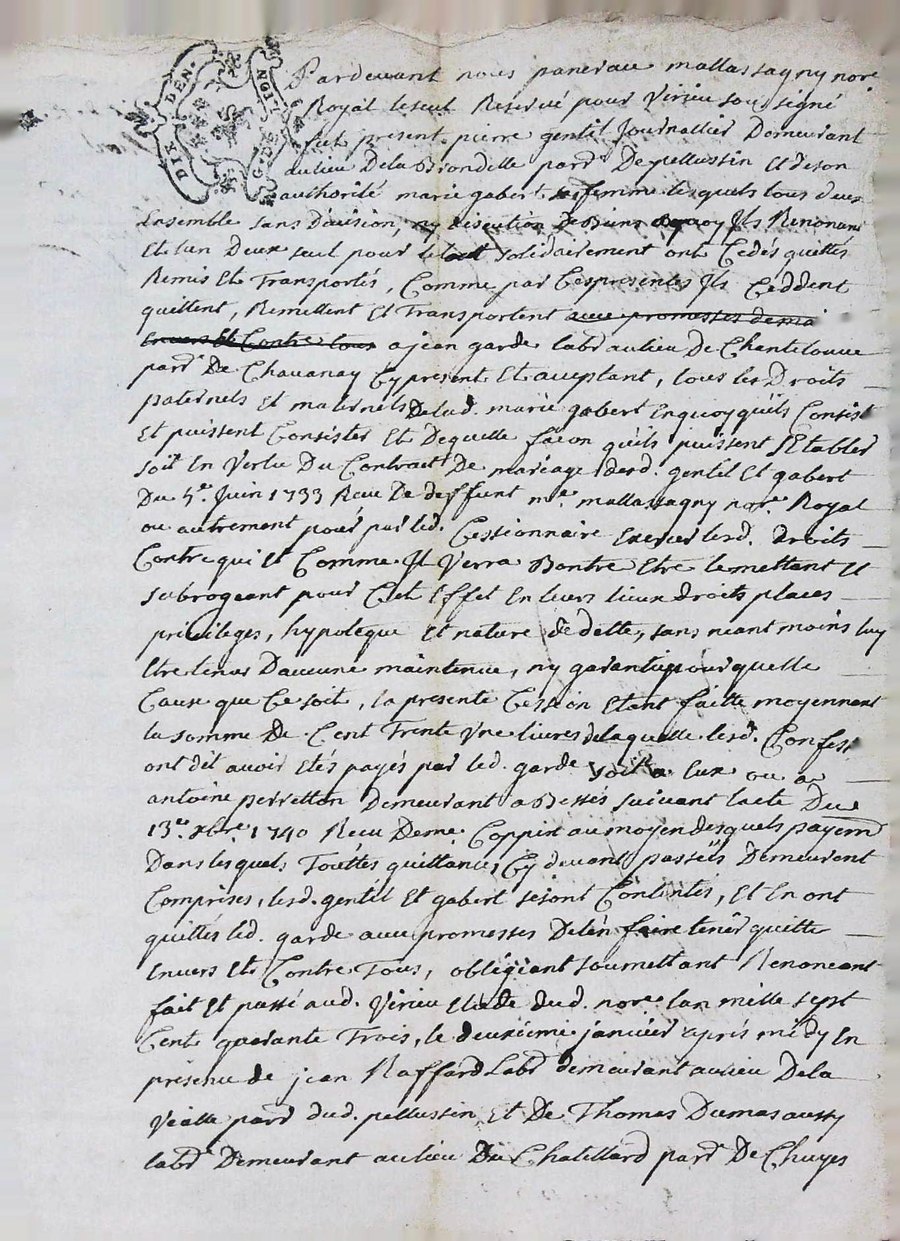 DIX DEN.
G. DE LION
Pardevant nous panerau mallassagny nore
Royal le seul Reservé pour Virieu soussigné
fut present pierre gentil Journallier Demeurant
au lieu De la Brondelle parr De pellussin et de son
authorité marie gabert sa femme lesquels tous deux
Ensemble sans Division, ny discution De Biens a quoy Ils Renoncent
Et lun Deux seul pour le tout solidairement ont Cedés quittés
Remis Et Transportés, Comme par Ces presentes Ils Ceddent
quittent, Remettent Et Transportent avec promesses de ma
Envers Et Contre tous a jean garde labr au lieu De Chantelouve
parr De Chavanay Cy present Et aceptant, tous les Droits
paternels Et maternels De lad. marie gabert En quoy quils Consist
Et puissent Consister Et De quelle façon quils puissent SEtablir
soit En Vertu Du Contract De mariage desd. gentil Et gabert
Du 5e. Juin 1733 Reçu De deffunt me. mallassagny nore. Royal
ou autrement pour par led. Cessionnaire Exercer lesd. droits
Contre qui Et Comme Il Verra Bon tre Etre le mettant Et
subrogeant pour Cet Effet En leurs lieux droits places
privileges, hypoteque Et nature de dette, sans neant moins luy
Etre tenus Daucune maintenue, ny garantie pour quelle
Cause que Ce soit, la presente Cession Etant faitte moyennant
la somme De Cent Trente Une livres de laquelle lesd. Confess
ont dit avoir Etés payés par led. garde soit a Eux ou a
antoine perretton Demeurant a Bessés suivant lacte Du
13e. xbre. 1740 Reçu De me. Coppin au moyen desquels payemt
Dans lesquels Touttes quittances Cy devant passeés Demeurent
Comprises, lesd. gentil Et gabert se sont Contentés, Et En ont
quittés led. garde avec promesses De len faire tenir quitte
Envers Et Contre Tous, obligeant soumettant Renonceant
fait Et passé aud. Virieu Etude dud. nore. lan mille sept
Cent quarante Trois, le deuxieme janvier apres midy En
presence de jean Raffard Labr demeurant au lieu De la
Vialle parr dud. pellussin Et De Thomas Dumas aussy
labr Demeurant au lieu Du Chatellard parr De Chuyes